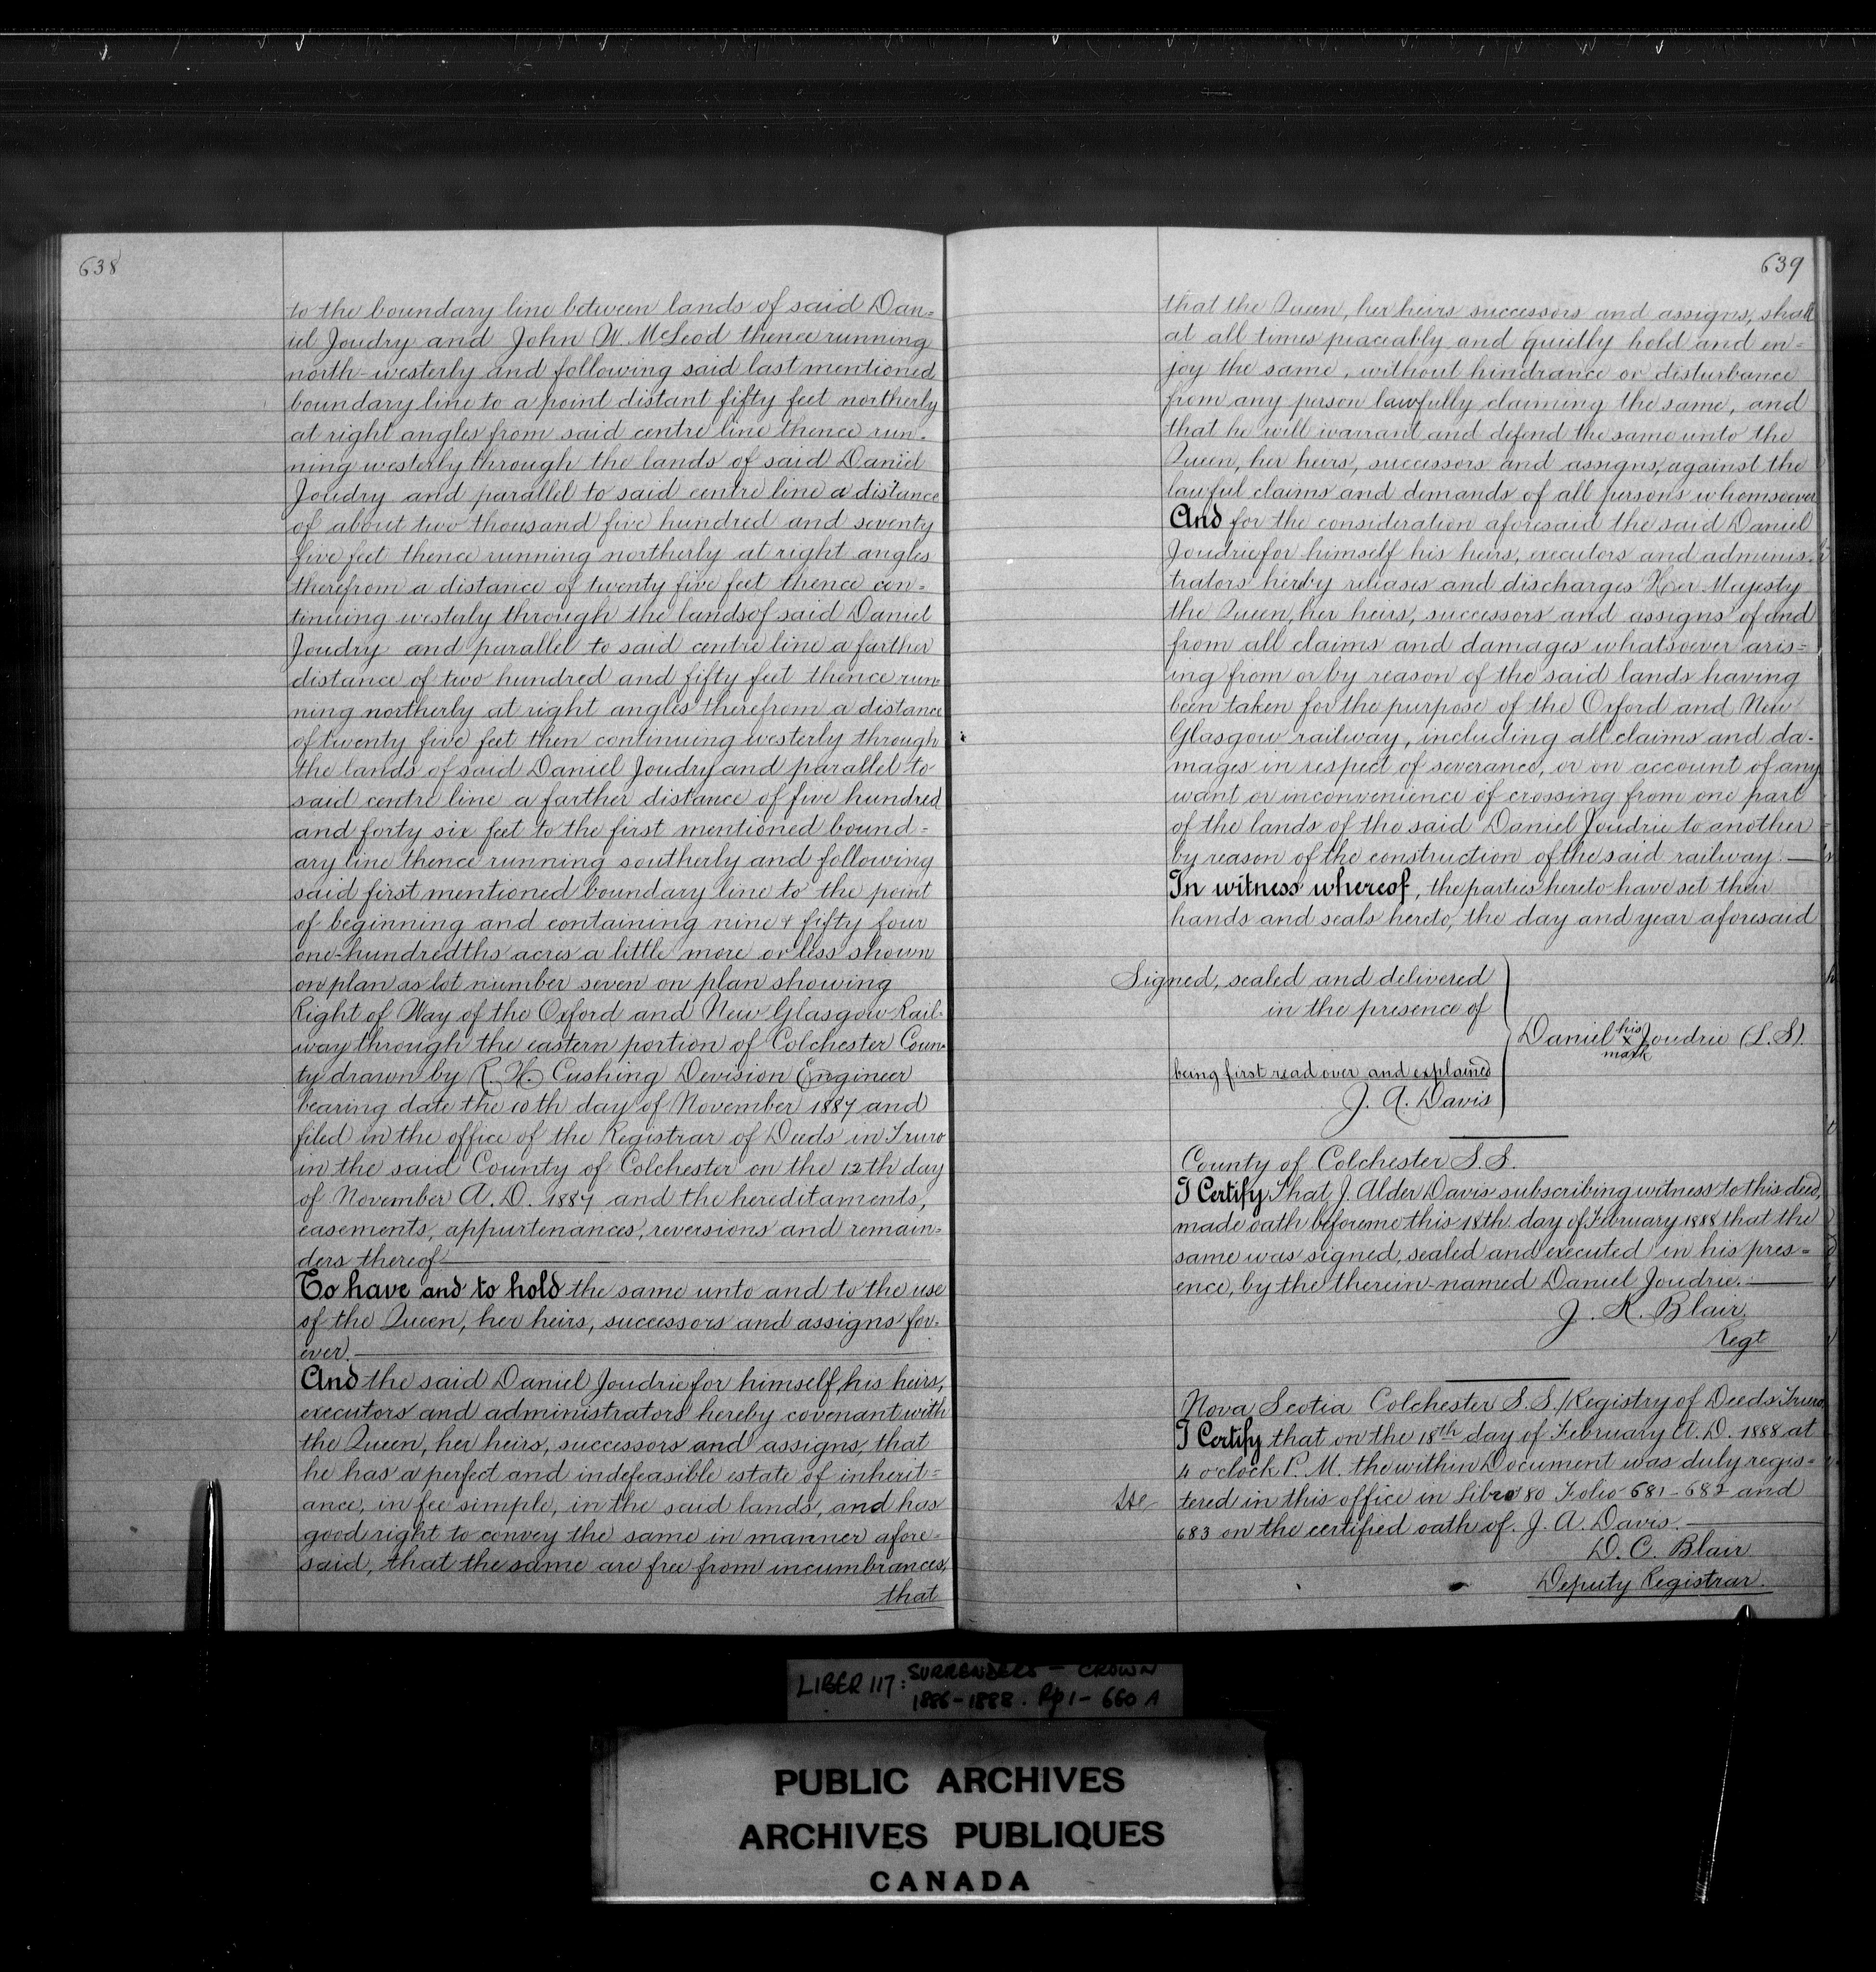 638
to the boundary line between lands of said Dan=
iel Joudry and John W. McLeod thence running
north-westerly and following said last mentioned
boundary line to a point distant fifty feet northerly
at right angles from said centre line thence run-
ning westerly through the lands of said Daniel
Joudry and parallel to said centre line a distance
of about two thousand five hundred and seventy
five feet thence running northerly at right angles
therefrom a distance of twenty five feet thence con=
tinuing westerly through the lands of said Daniel
Joudry and parallel to said centre line a farther
distance of two hundred and fifty feet thence run-
ning northerly at right angles therefrom a distance
of twenty five feet then continuing westerly through
the lands of said Daniel Joudry and parallel to
said centre line a farther distance of five hundred
and forty six feet to the first mentioned bound=
ary line thence running southerly and following
said first mentioned boundary line to the point
of beginning and containing nine & fifty four
one-hundredths acres a little more or less shown
on plan as lot number seven on plan showing
Right of Way of the Oxford and New Glasgow Rail-
way through the eastern portion of Colchester Coun-
ty drawn by R. H. Cushing Devision Engineer
bearing date the 10th day of November 1887 and
filed in the office of the Registrar of Deeds in Truro
in the said County of Colchester on the 12th day
of November A. D. 1887 and the hereditaments,
easements, appurtenances, reversions and remain-
ders thereof
To have and to hold the same unto and to the use
of the Queen, her heirs, successors and assigns for-
ever.
And the said Daniel Joudrie for himself, his heirs,
executors and administrators hereby covenant with
the Queen, her heirs, successors and assigns, that
he has a perfect and indefeasible estate of inherit=
ance, in fee simple, in the said lands, and has
good right to convey the same in manner afore-
said, that the same are free from incumbrances,
that
639
that the Queen, her heirs successors and assigns, shall
at all times peaceably and quietly hold and en=
joy the same, without hindrance or disturbance
from any person lawfully claiming the same, and
that he will warrant and defend the same unto the
Queen, her heirs, successors and assigns, against the
lawful claims and demands of all persons whomsoever
And for the consideration aforesaid the said Daniel
Joudrie for himself his heirs, executors and adminis-
trators hereby releases and discharges Her Majesty
the Queen, her heirs, successors and assigns of and
from all claims and damages whatsoever aris=
ing from or by reason of the said lands having
been taken for the purpose of the Oxford and New
Glasgow railway, including all claims and da-
mages in respect of severance, or on account of any
want or inconvenience of crossing from one part
of the lands of the said Daniel Joudrie to another
by reason of the construction of the said railway.
In witness whereof, the parties hereto have set their
hands and seals hereto, the day and year aforesaid
Signed, sealed and delivered
in the presence of
Daniel his x mark Joudrie (L.S)
being first read over and explained
J. A. Davis
County of Colchester S.S.
I Certify That J. Alder Davis subscribing witness to this deed,
made oath before me this 18th day of February 1888 that the
same was signed, sealed and executed in his pres=
ence, by the therein-named Daniel Joudrie.
J. K. Blair
Regt
Nova Scotia Colchester S.S. Registry of Deeds Truro
I Certify that on the 18th day of February A. D. 1888 at
4 o'clock P. M. the within Document was duly regis-
tered in this office in Libro 80 Folio 681-682 and
683 on the certified oath of J. A. Davis.
D. C. Blair
Deputy Registrar.
LIBER 117: SURRENDERS - CROWN
1886-1888. Pp 1-660 A
PUBLIC ARCHIVES
ARCHIVES PUBLIQUES
CANADA